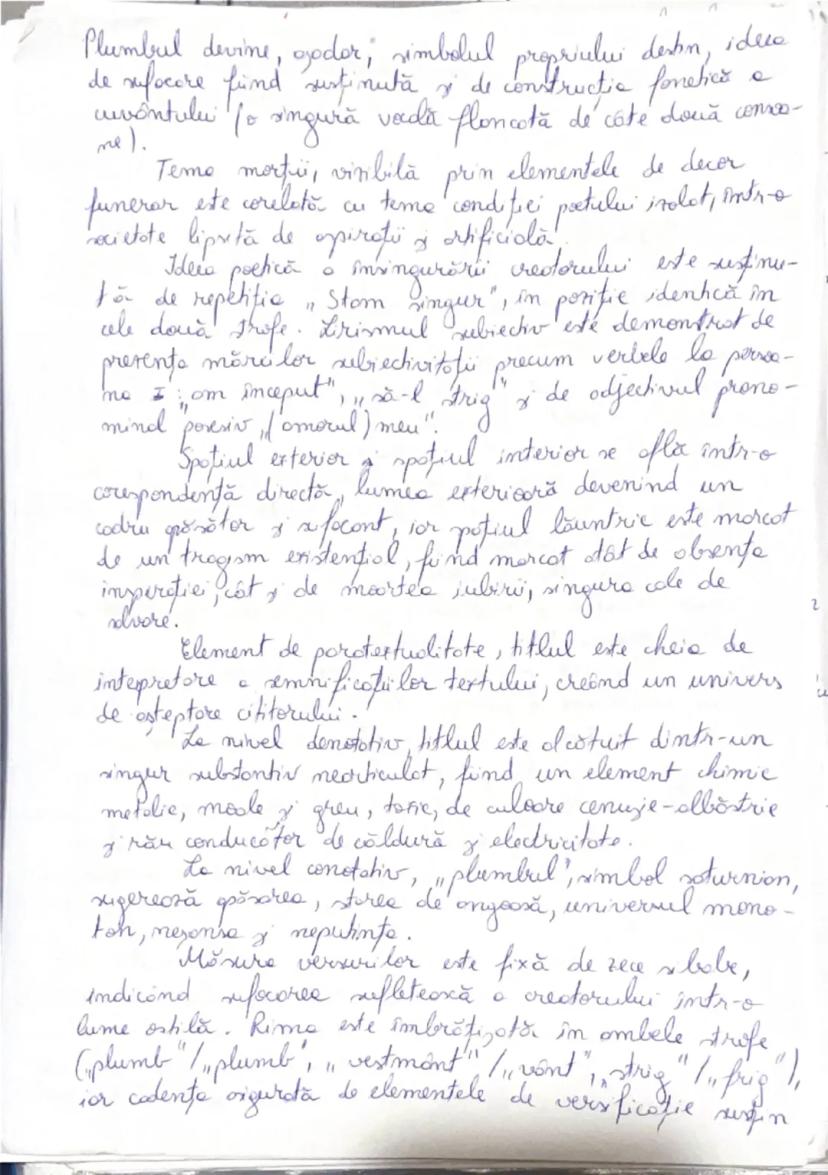 Plumbul devine, așadar, simbolul propriului destin, ideea
de sufocare fiind susținută și de construcția fonetică a
cuvântului (o singură vocală flancată de câte două consoa-
ne).
Tema morții, vizibilă prin elementele de decor
funerar este corelată cu tema condiției poetului izolat, într-o
societate lipsită de aspirații și artificială.
Ideea poetică a însingurării creatorului este susținu-
tă de repetiția „Stam singur", în poziție identică în
cele două strofe. Lirismul subiectiv este demonstrat de
prezența mărcilor subiectivității precum verbele la persoa-
na I: „am început", „să-l strig" și de adjectivul prono-
minal posesiv „(amorul) meu".
Spațiul exterior și spațiul interior se află într-o
corespondență directă, lumea exterioară devenind un
cadru apăsător și sufocant, iar spațiul lăuntric este marcat
de un tragism existențial, fiind marcat atât de absența
inspirației, cât și de moartea iubirii, singura cale de
salvare.
Element de paratextualitate, titlul este cheia de
intepretare a semnificațiilor textului, creând un univers
de așteptare cititorului.
La nivel denotativ, titlul este alcătuit dintr-un
singur substantiv nearticulat, fiind un element chimic
metalic, moale și greu, toxic, de culoare cenușie-albăstrie
și rău conducător de căldură și electricitate.
La nivel conotativ, „plumbul", simbol saturnian,
sugerează apăsarea, starea de angoasă, universul mono-
ton, neșansa și neputința.
Măsura versurilor este fixă de zece silabe,
indicând sufocarea sufletească a creatorului într-o
lume ostilă. Rima este îmbrățișată în ambele strofe
(„plumb"/„plumb", „vestmânt"/„vânt", „strig"/„frig"),
iar cadența asigurată de elementele de versificație susțin